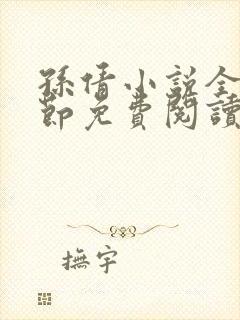 孫倩小說全
節免費閱讀
撫宇